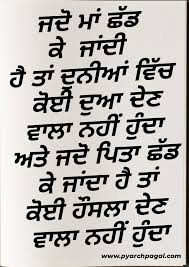 ਜਦੋ ਮਾਂ ਛੱਡ
ਕੇ ਜਾਂਦੀ
ਹੈ ਤਾਂ ਦੁਨੀਆਂ ਵਿੱਚ
ਕੋਈ ਦੁਆ ਦੇਣ
ਵਾਲਾ ਨਹੀਂ ਹੁੰਦਾ
ਅਤੇ ਜਦੋ ਪਿਤਾ ਛੱਡ
ਕੇ ਜਾਂਦਾ ਹੈ ਤਾਂ
ਕੋਈ ਹੌਸਲਾ ਦੇਣ
ਵਾਲਾ ਨਹੀਂ ਹੁੰਦਾ
www.pyarchpagal.com